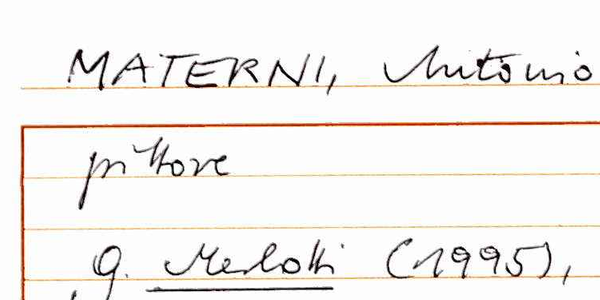 MATERNI, Antonio
pittore
G. Merlotti (1995),